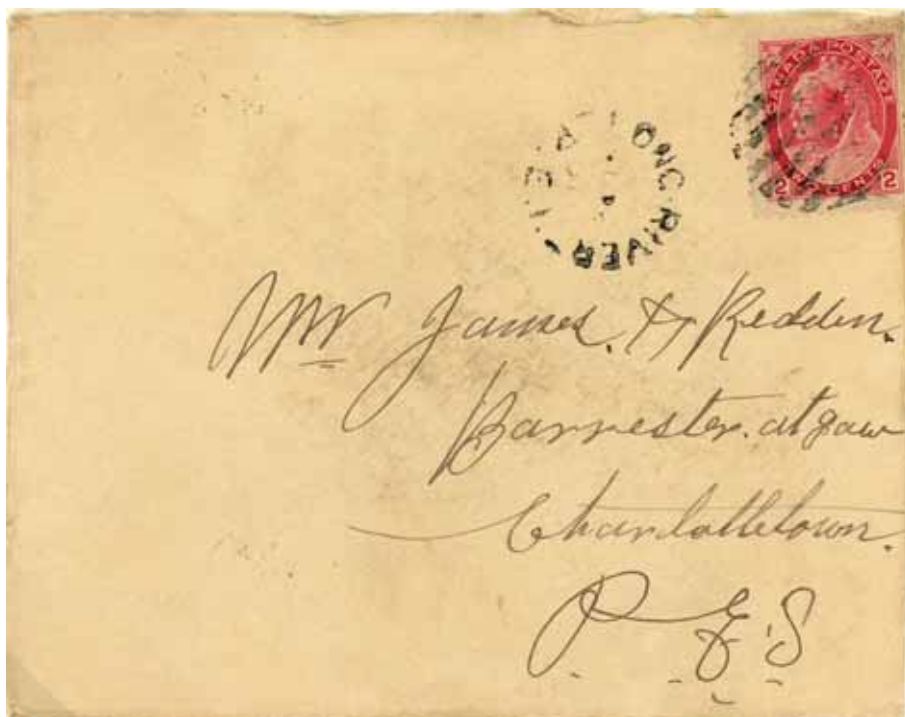 CANADA POSTAGE
2 TWO CENTS 2
LONG RIVER P.E.I.
Mr James. H Reddin.
Barrester. at Law
Charlottetown.
P. E. I